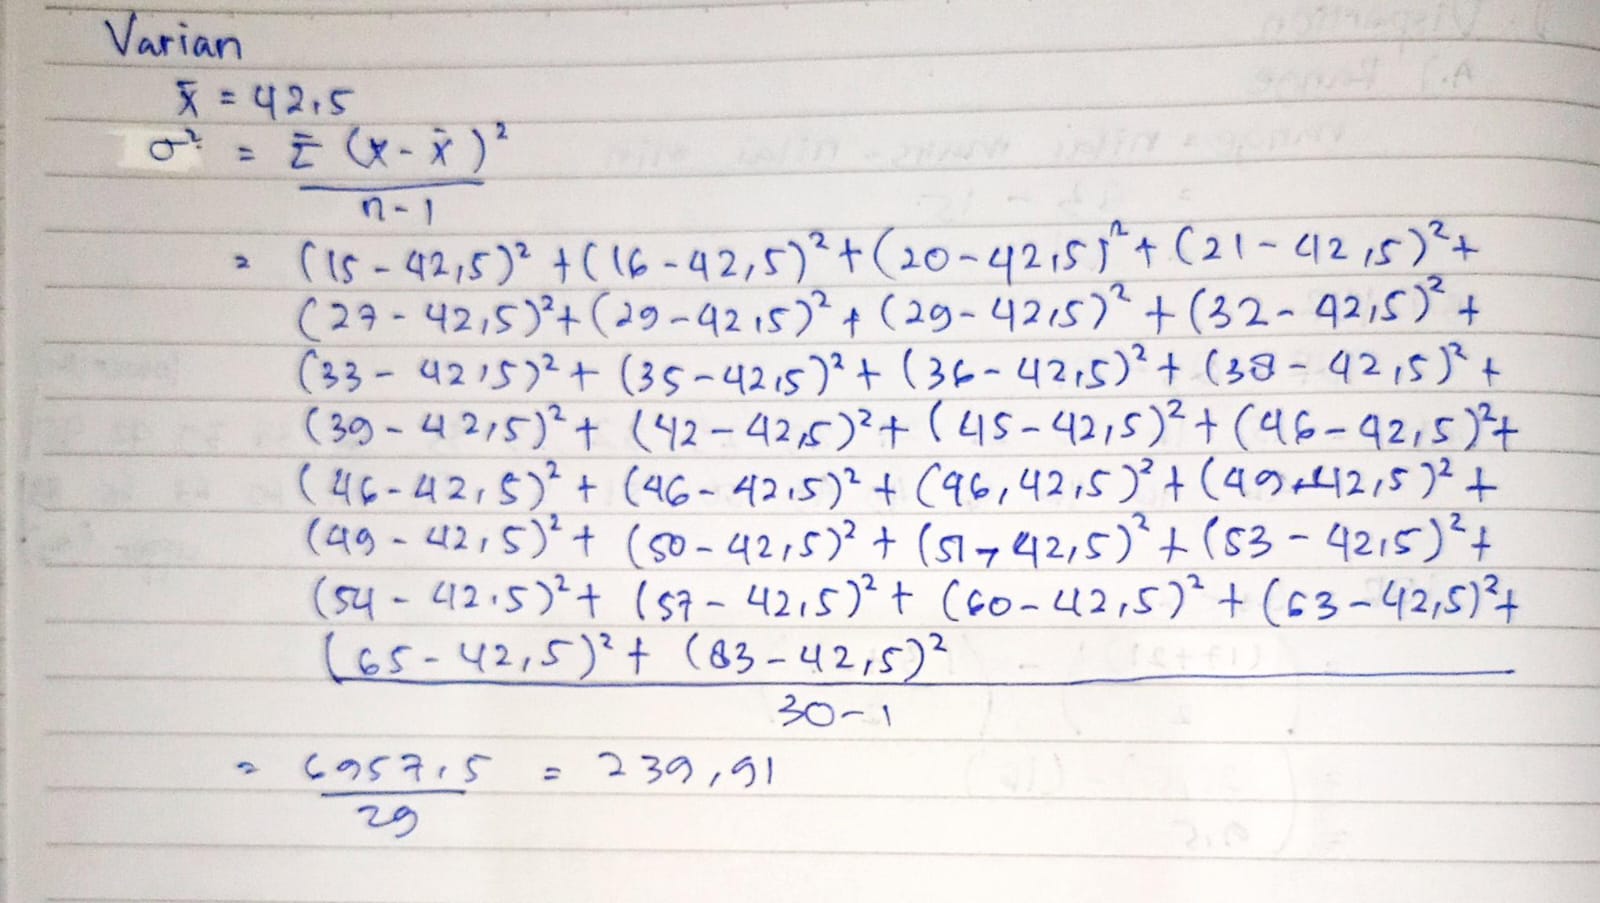 Varian
x̄ = 42,5
σ² = Σ (x - x̄)²
n-1
= (15 - 42,5)² + (16 - 42,5)² + (20 - 42,5)² + (21 - 42,5)² +
(27 - 42,5)² + (29 - 42,5)² + (29 - 42,5)² + (32 - 42,5)² +
(33 - 42,5)² + (35 - 42,5)² + (36 - 42,5)² + (38 - 42,5)² +
(39 - 42,5)² + (42 - 42,5)² + (45 - 42,5)² + (46 - 42,5)² +
(46 - 42,5)² + (46 - 42,5)² + (46, 42,5)² + (49 - 42,5)² +
(49 - 42,5)² + (50 - 42,5)² + (51 - 42,5)² + (53 - 42,5)² +
(54 - 42,5)² + (57 - 42,5)² + (60 - 42,5)² + (63 - 42,5)² +
(65 - 42,5)² + (83 - 42,5)²
30-1
= 6957,5 = 239,91
29